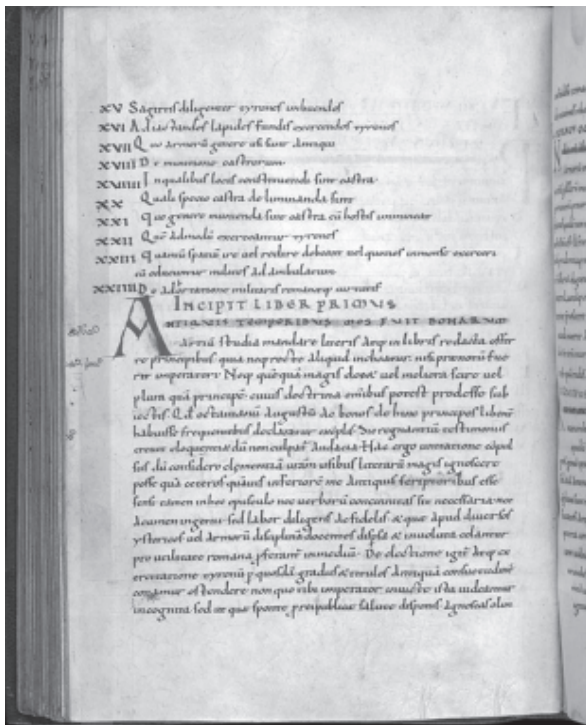 XV Sagittis diligenter tyrones inbuendos
XVI Ad iactandos lapides fundis exercendos tyrones
XVII Quo armorū genere usi sunt antiqui
XVIII De munitione castrorum
XVIIII In qualibus locis construenda sunt castra
XX Quali specie castra delimitanda sunt
XXI Quo genere munienda sint castra cū hostis inminet
XXII Quē admodū exerceantur tyrones
XXIII Quantū spatiū ire vel redire debeant vel quotiens in mense exerceri
cū educuntur milites ad ambulatum
XXIIII De adortatione militaris romaneq; virtutis
INCIPIT LIBER PRIMUS
ANTIQUIS TEMPORIBUS MOS FUIT BONARUM
artiū studia mandare literis atq; in libris redacta offer
re principibus quia neq; recte aliquid inchoatur nisi faue
rit imperator; Neq; quēquā magis decet vel meliora scire vel
plura quā principē cuius doctrina omibus potest prodesse sub
iectis Qd̄ octavianū augustū ac bonos dehinc principes libent̄
habuisse frequentibus declaratur exēplis Sic regnantiū testimoniis
crevit eloquentia dū non culpatur audacia Hac ergo imitatione cōpul
sus dū considero clementiā vr̄am ausibus literarū magis ignoscere
posse quā ceteros inferiorē me antiquis scriptoribus esse
sensi tamen in hoc opusculo nec verborū concinnitas sit necessaria nec
acumen ingenii sed labor diligens ac fidelis ut que apud diversos
ystoricos vel armorū disciplinā docentes dispersa et involuta celantur
pro utilitate romana pferant̄ in mediū De electione igit̄ atq; ex
ercitatione tyronū p quosdā gradus et titulos antiquā consuetudinē
conamur ostendere non quo tibi imperator invicte ista videantur
incognita sed ut que sponte pro reipublice salute disponis agnoscas olim